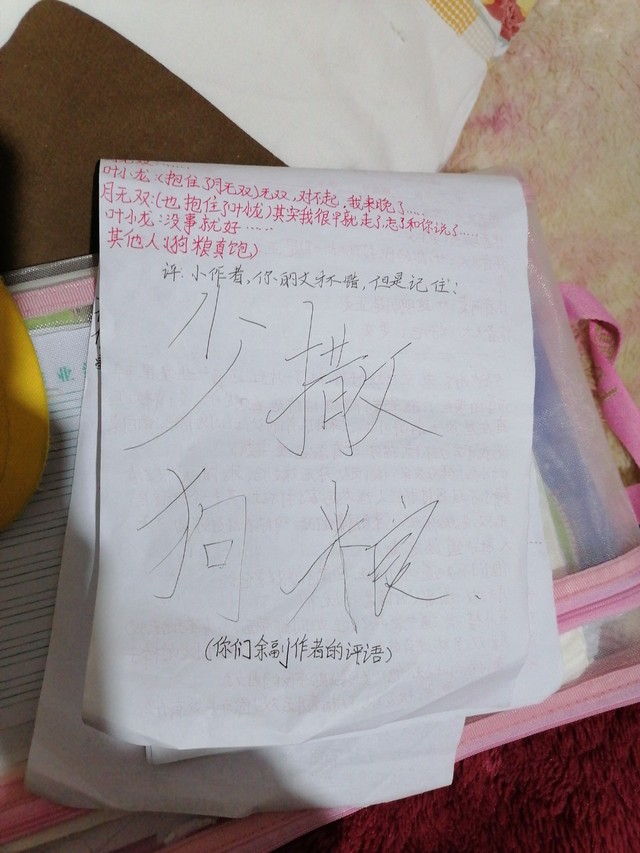 叶小龙:(抱住了月无双)无双,对不起,我来晚了……
月无双:(也抱住了叶小龙)其实我很早就走了忘了和你说了……
叶小龙:没事就好……
其他人:(狗粮真饱)
评:小作者,你的文才不错,但是记住:
少撒
狗粮.
(你们余副作者的评语)
业